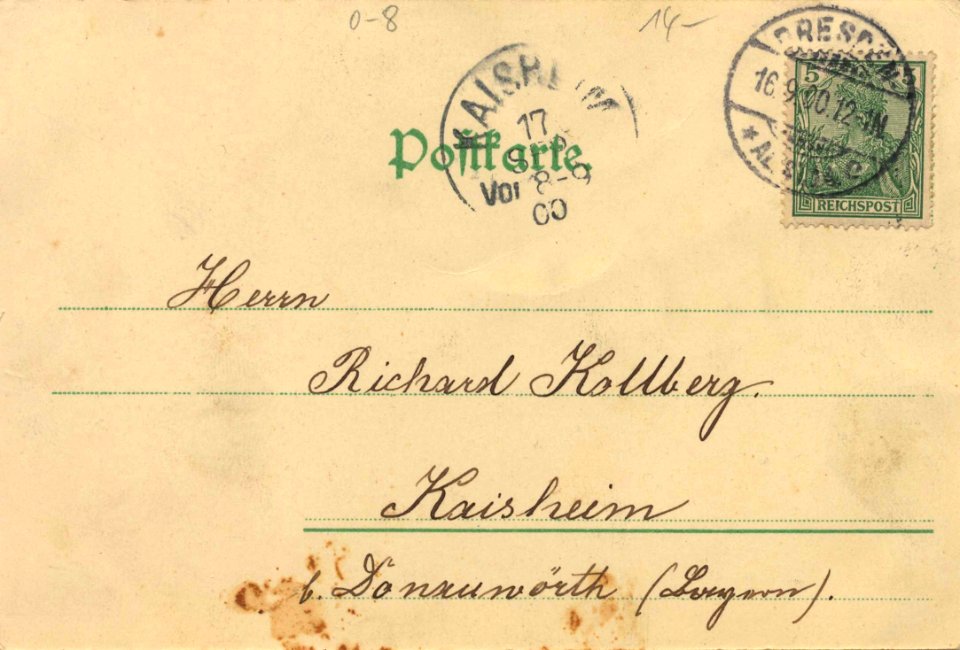 0-8
14-
DRESDEN
16.9.00.12-1N.
* ALTST.
KAISHEIM
17
Vor 8-9
00
Postkarte.
5
REICHSPOST
Herrn
Richard Kollberg.
Kaisheim
b. Donauwörth (Bayern).